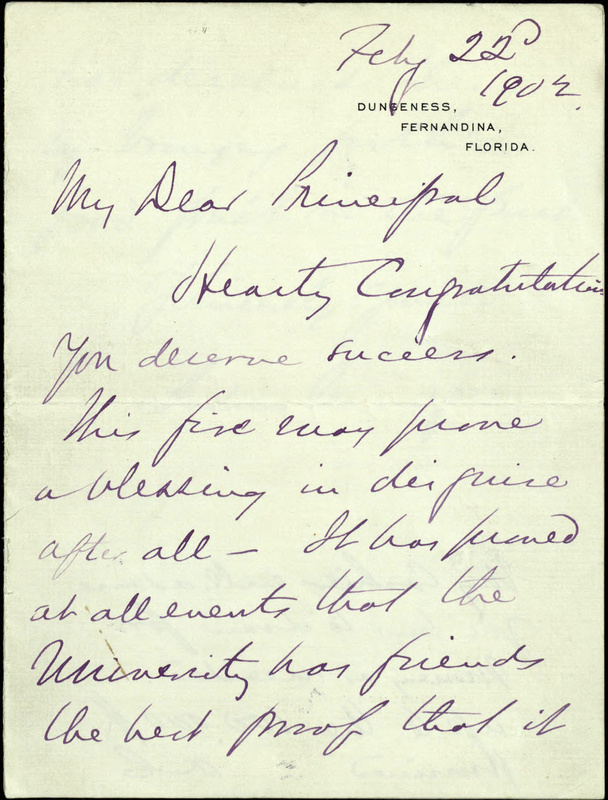 Feby 22d
1902.
DUNGENESS,
FERNANDINA,
FLORIDA.
My Dear Principal
Hearty Congratulations
You deserve success.
This fire may prove
a blessing in disguise
after all – It has proved
at all events that the
University has friends
the best proof that it